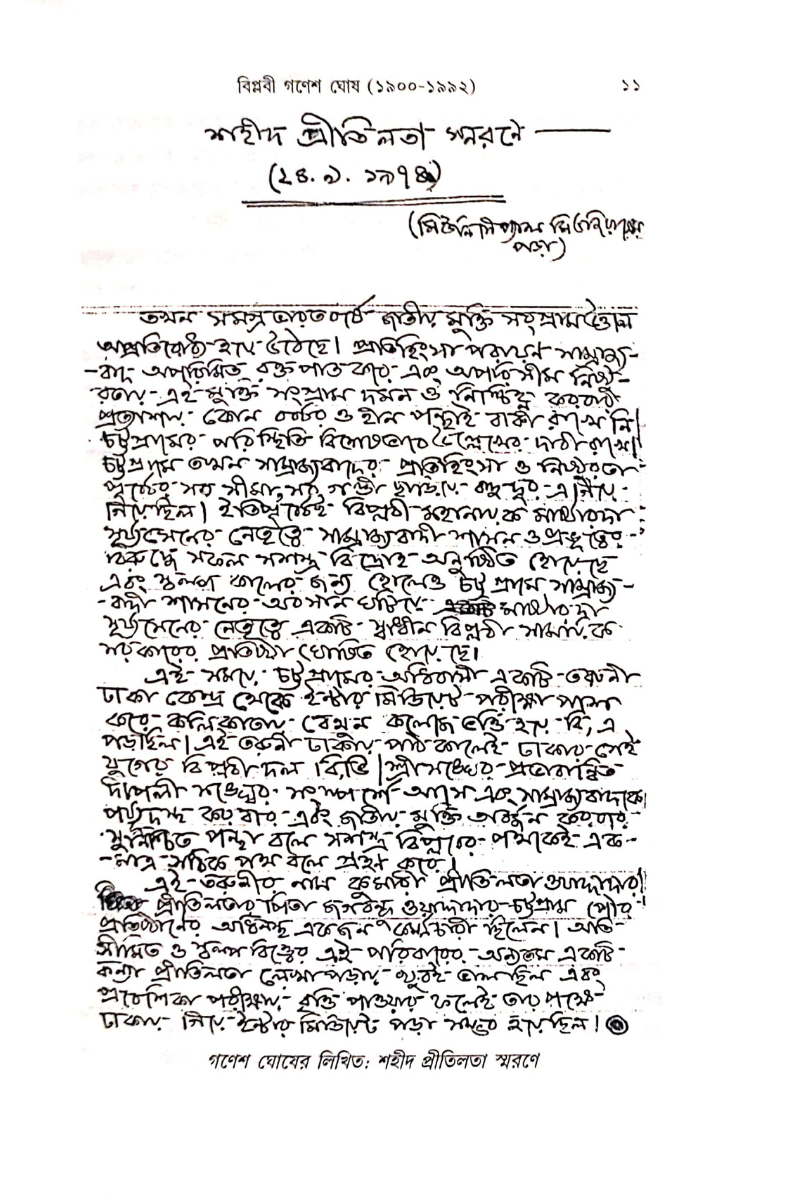 বিপ্লবী গণেশ ঘোষ (১৯০০-১৯৯২) ১১
শহীদ প্রীতিলতা স্মরণে ———
(২৪. ৯. ১৯৭৪)
পড়া)
তখন সমগ্র ভারতবর্ষে জাতীয় মুক্তি সংগ্রাম
অপ্রতিরোধ্য হয়ে উঠেছে। প্রতিহিংসা পরায়ণ সাম্রাজ্য-
-বাদ অপরিমিত রক্তপাত করে এবং অপরিসীম নিষ্ঠু-
রতায় এই মুক্তি সংগ্রাম দমন ও নিশ্চিহ্ন করবার
প্রত্যাশায় কোন বর্বর ও হীন পন্থাই বাকী রাখে নি।
চট্টগ্রামের পরিস্থিতি বিশেষভাবে উল্লেখের দাবী রাখে।
চট্টগ্রামে তখন সাম্রাজ্যবাদের প্রতিহিংসা ও নিষ্ঠুরতা
পূর্বের সব সীমা, সব গণ্ডী ছাড়িয়ে বহু দূর এগিয়ে
গিয়েছিল। ইতিপূর্বেই বিপ্লবী মহানায়ক মাষ্টারদা
সূর্যসেনের নেতৃত্বে সাম্রাজ্যবাদী শাসন ও প্রভুত্বের
বিরুদ্ধে সফল সশস্ত্র বিদ্রোহ অনুষ্ঠিত হোয়েছে
এবং স্বল্প কালের জন্য হোলেও চট্টগ্রামে সাম্রাজ্য-
-বাদী শাসনের অবসান ঘটিয়ে মাষ্টারদা
সূর্যসেনের নেতৃত্বে একটি স্বাধীন বিপ্লবী সাময়িক
সরকারের প্রতিষ্ঠা ঘোষিত হোয়েছে।
এই সময়ে চট্টগ্রামের অধিবাসী একটি তরুনী
ঢাকা কেন্দ্র থেকে ইন্টার মিডিয়েট পরীক্ষা পাশ
করে কলিকাতায় বেথুন কলেজে ভর্ত্তি হয়ে বি, এ
পড়ছিল। এই তরুনী ঢাকায় পাঠ কালেই ঢাকার সেই
যুগের বিপ্লবী দল বিভি।শ্রীসঙ্ঘের প্রভাবান্বিত
দীপালী সঙ্ঘের সংস্পর্শে আসে এবং সাম্রাজ্যবাদকে
পর্য্যুদস্ত করবার এবং জাতীয় মুক্তি অর্জন করবার
সুনিশ্চিত পন্থা বলে সশস্ত্র বিপ্লবের পথকেই এক-
-মাত্র সঠিক পথ বলে গ্রহণ করে।
এই তরুনীর নাম কুমারী প্রীতিলতা ওয়াদ্দাদার।
প্রীতিলতার পিতা জগবন্ধু ওয়াদ্দাদার চট্টগ্রাম পৌর
প্রতিষ্ঠানের অধিনস্থ একজন কর্মচারী ছিলেন। অতি
সীমিত ও স্বল্প বিত্তের এই পরিবারের অন্যতম একটি
কন্যা প্রীতিলতা লেখা পড়ায় খুবই ভাল ছিল এবং
প্রবেশিকা পরীক্ষায় বৃত্তি পাওয়ার ফলেই তার পক্ষে
ঢাকায় গিয়ে ইন্টার মিডিয়েট পড়া সম্ভব হয়েছিল।
গণেশ ঘোষের লিখিত: শহীদ প্রীতিলতা স্মরণে